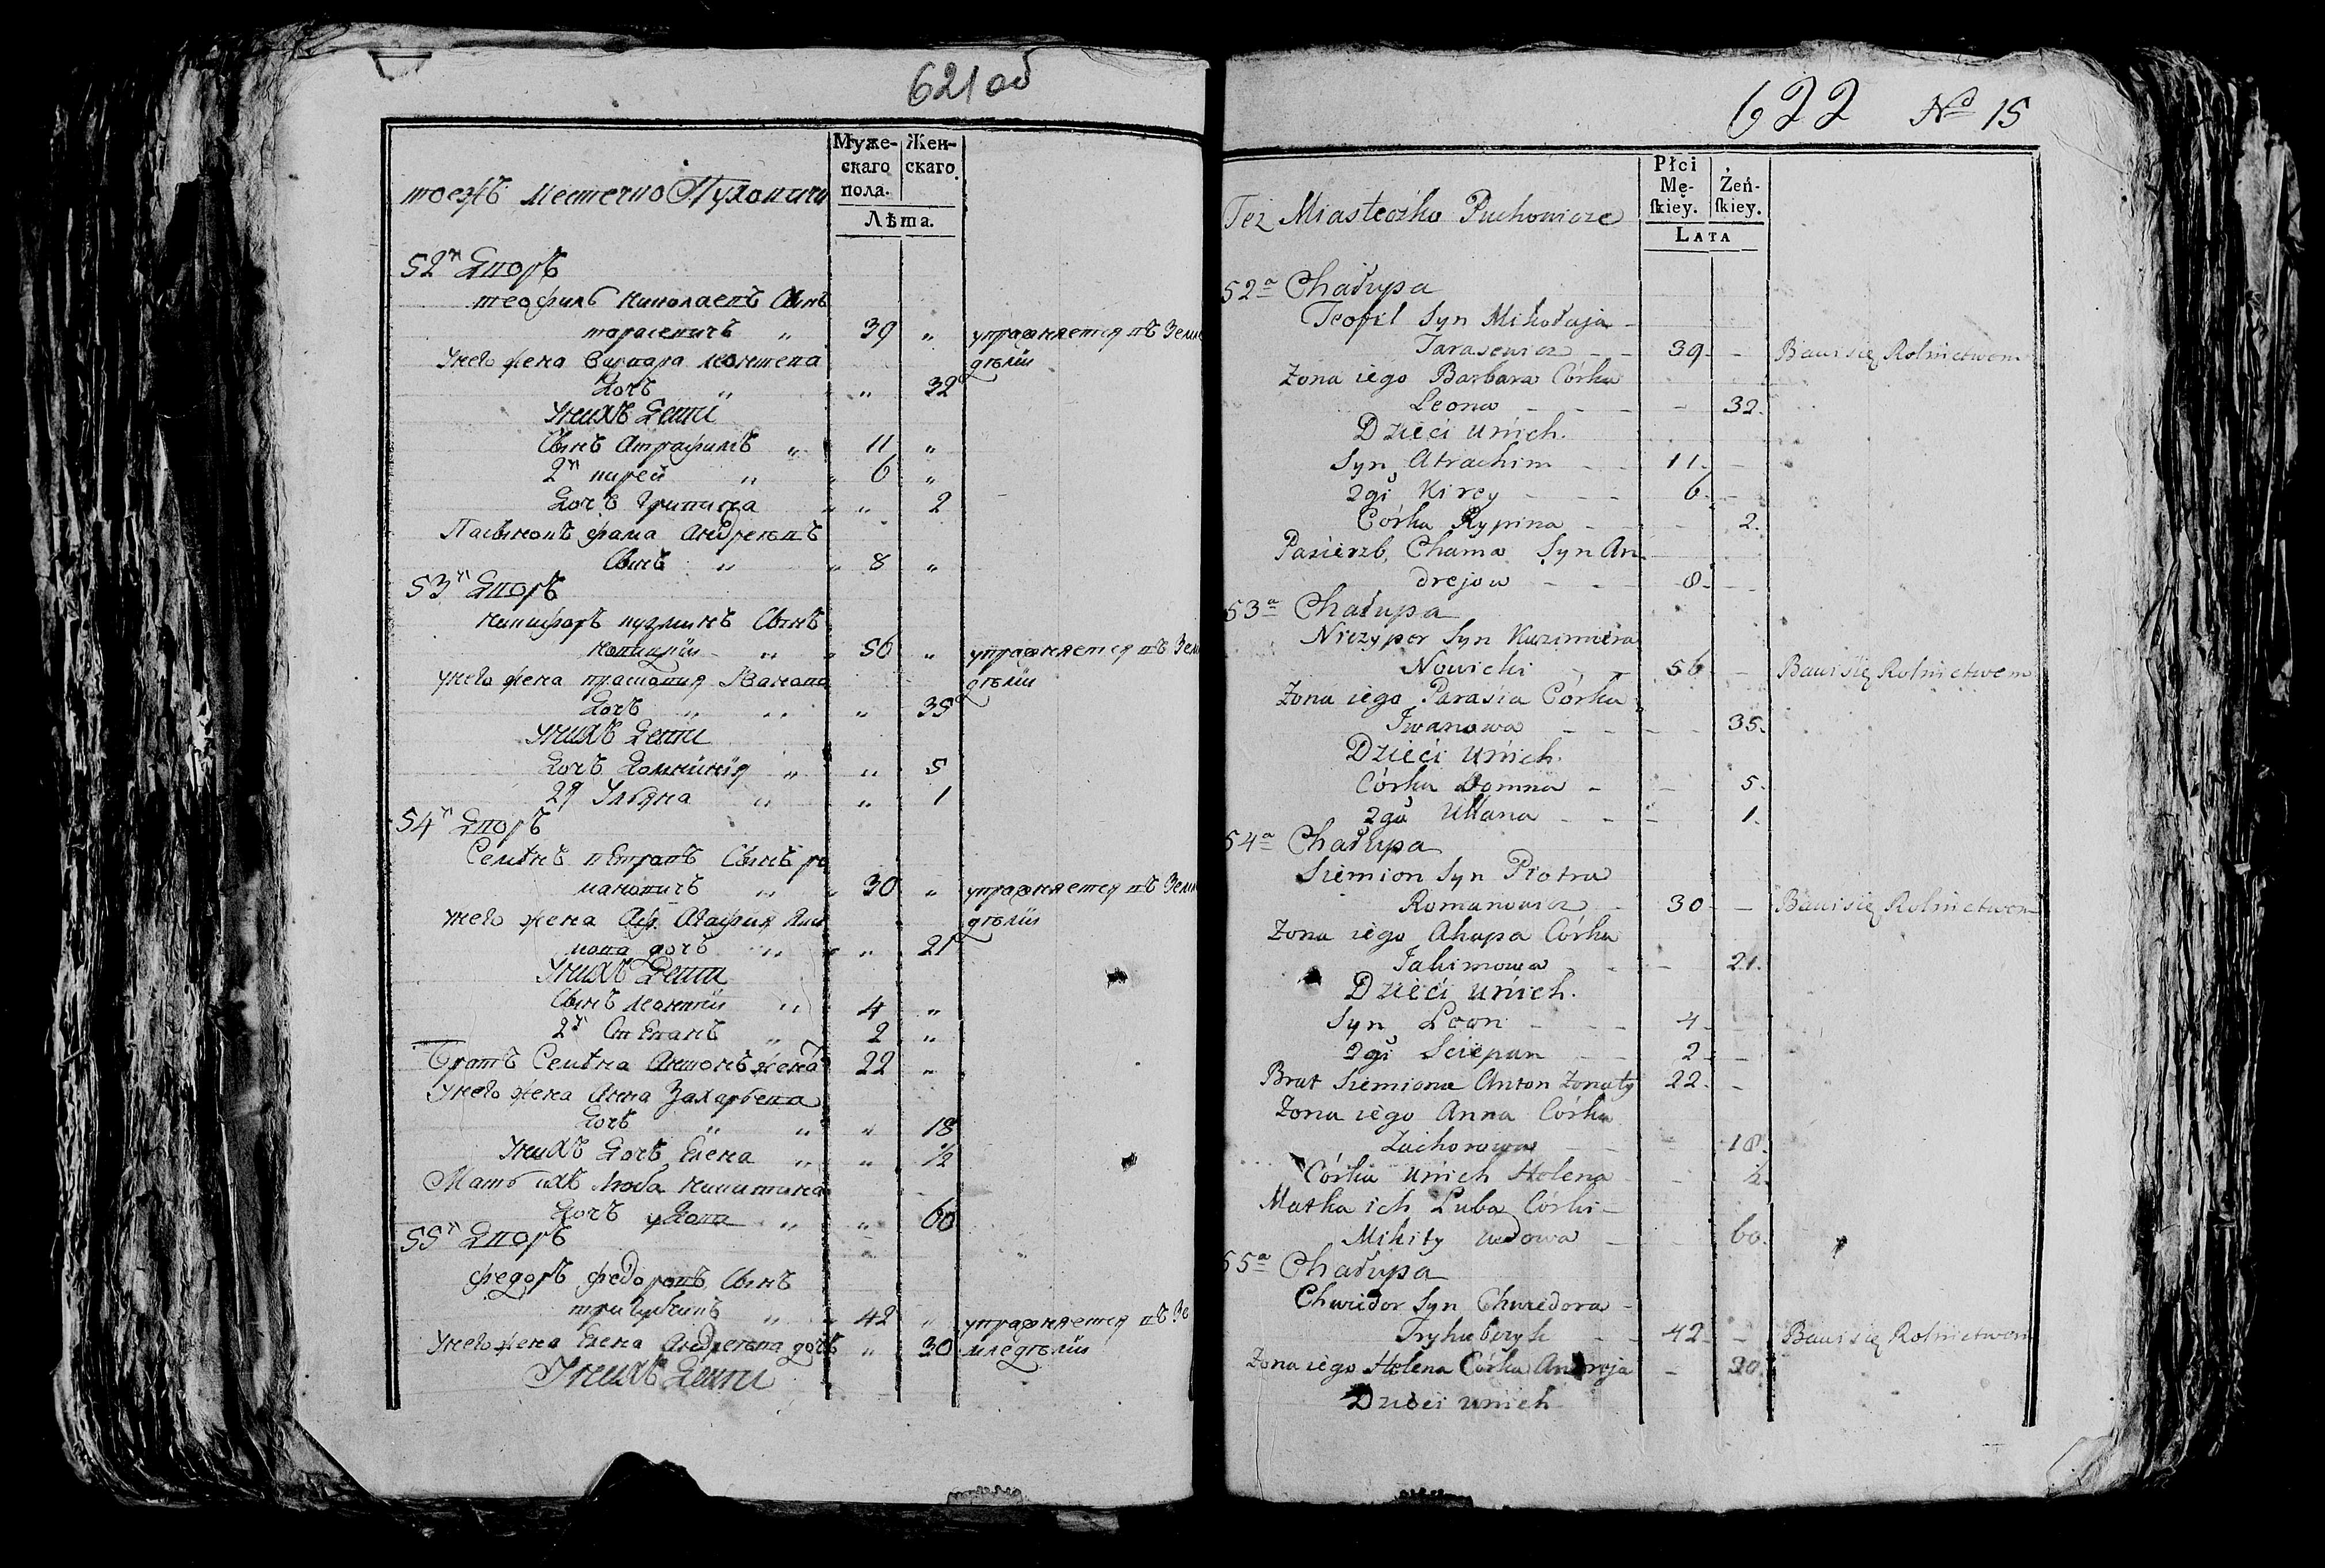 621 об
Муже-
скаго
пола.
Жен-
скаго.
Лѣта.
тоежъ местечко Пуховичи
52й Дворъ
теофилъ николаевъ Сынъ
тарасевичъ „ 39 „ упражняется въ Земле
унего жена Варвара леонтева дѣліи
Дочь „ „ 32
Унихъ Дети
Сынъ Атрафимъ „ 11 „
2й кирей „ „ 6 „
Дочь Грипина „ „ 2
Пасынокъ фама Андреевъ
Сынъ „ „ 8 „
53й Дворъ
никифоръ кузминъ Сынъ
новицкій „ „ 56 „ упражняется въ Зем
унего жена прасковия Иванова дѣліи
Дочь „ „ „ 35
Унихъ Дети
Дочь Домникія „ „ 5
2я Ульяна „ „ 1
54й Дворъ
Семенъ петровъ Сынъ ро
мановичъ „ „ 30 „ упражняется въ Земл
унего жена Агафия Яки дѣліи
мова дочь „ „ „ 21
Унихъ Дети
Сынъ леонтій „ 4 „
2й Степанъ „ 2 „
Братъ Семена Антонъ жена 22 „
Унего жена Анна Захарьева
Дочь „ „ „ 18
Унихъ Дочь Елена „ „ 1/2
Мать ихъ Люба никитина
Дочь удова „ „ 60
55й Дворъ
федоръ федоровъ Сынъ
„ „ 42 „ упражняется въ Зе
Унего жена Елена Андреева дочь „ 30 мледѣліи
Унихъ Дети
622 No 15
Płci
Mę-
ſkiey.
Żeń-
ſkiey.
LATA
Też Miasteczko Puchowicze
52a Chałupa
Teofil Syn Mikołaja –
Tarasewicz – – 39 – Bawi się Rolnictwem
Żona iego Barbara Córka
Leona – – – – 32.
Dzieci unich.
Syn Atrachim – – 11. –
2gi Kirey – – – 6. –
Córka Rypina – – 2.
Pasierzb, Chama Syn An
drejow – – – 8. –
53a Chałupa
Niczyper Syn Kazimiera
Nowicki – – 56 – Bawi się Rolnictwem
Żona iego Parasia Córka
Iwanowa – – – 35.
Dzieci unich.
Córka Domna – – 5.
2ga Ullana – – – 1.
54a Chałupa
Siemion Syn Piotra
Romanowicz – 30 – Bawi się Rolnictwem
Żona iego Ahapa Córka
Jakimowa – – 21.
Dzieci unich.
Syn Leon – – – 4 –
2gi Sciepan – – 2. –
Brat Siemiona Anton Żonaty 22. –
Żona iego Anna Córka
Zachorowa – – – 18.
Córka unich Helena – – ½
Matka ich Luba Córki –
Mikity wdowa – – 60.
55a Chałupa
Chwiedor Syn Chwiedora –
Tryhubczyk – – 42 – Bawi się Rolnictwem
Żona iego Helena Córka Andreja – 30.
Dzieci unich